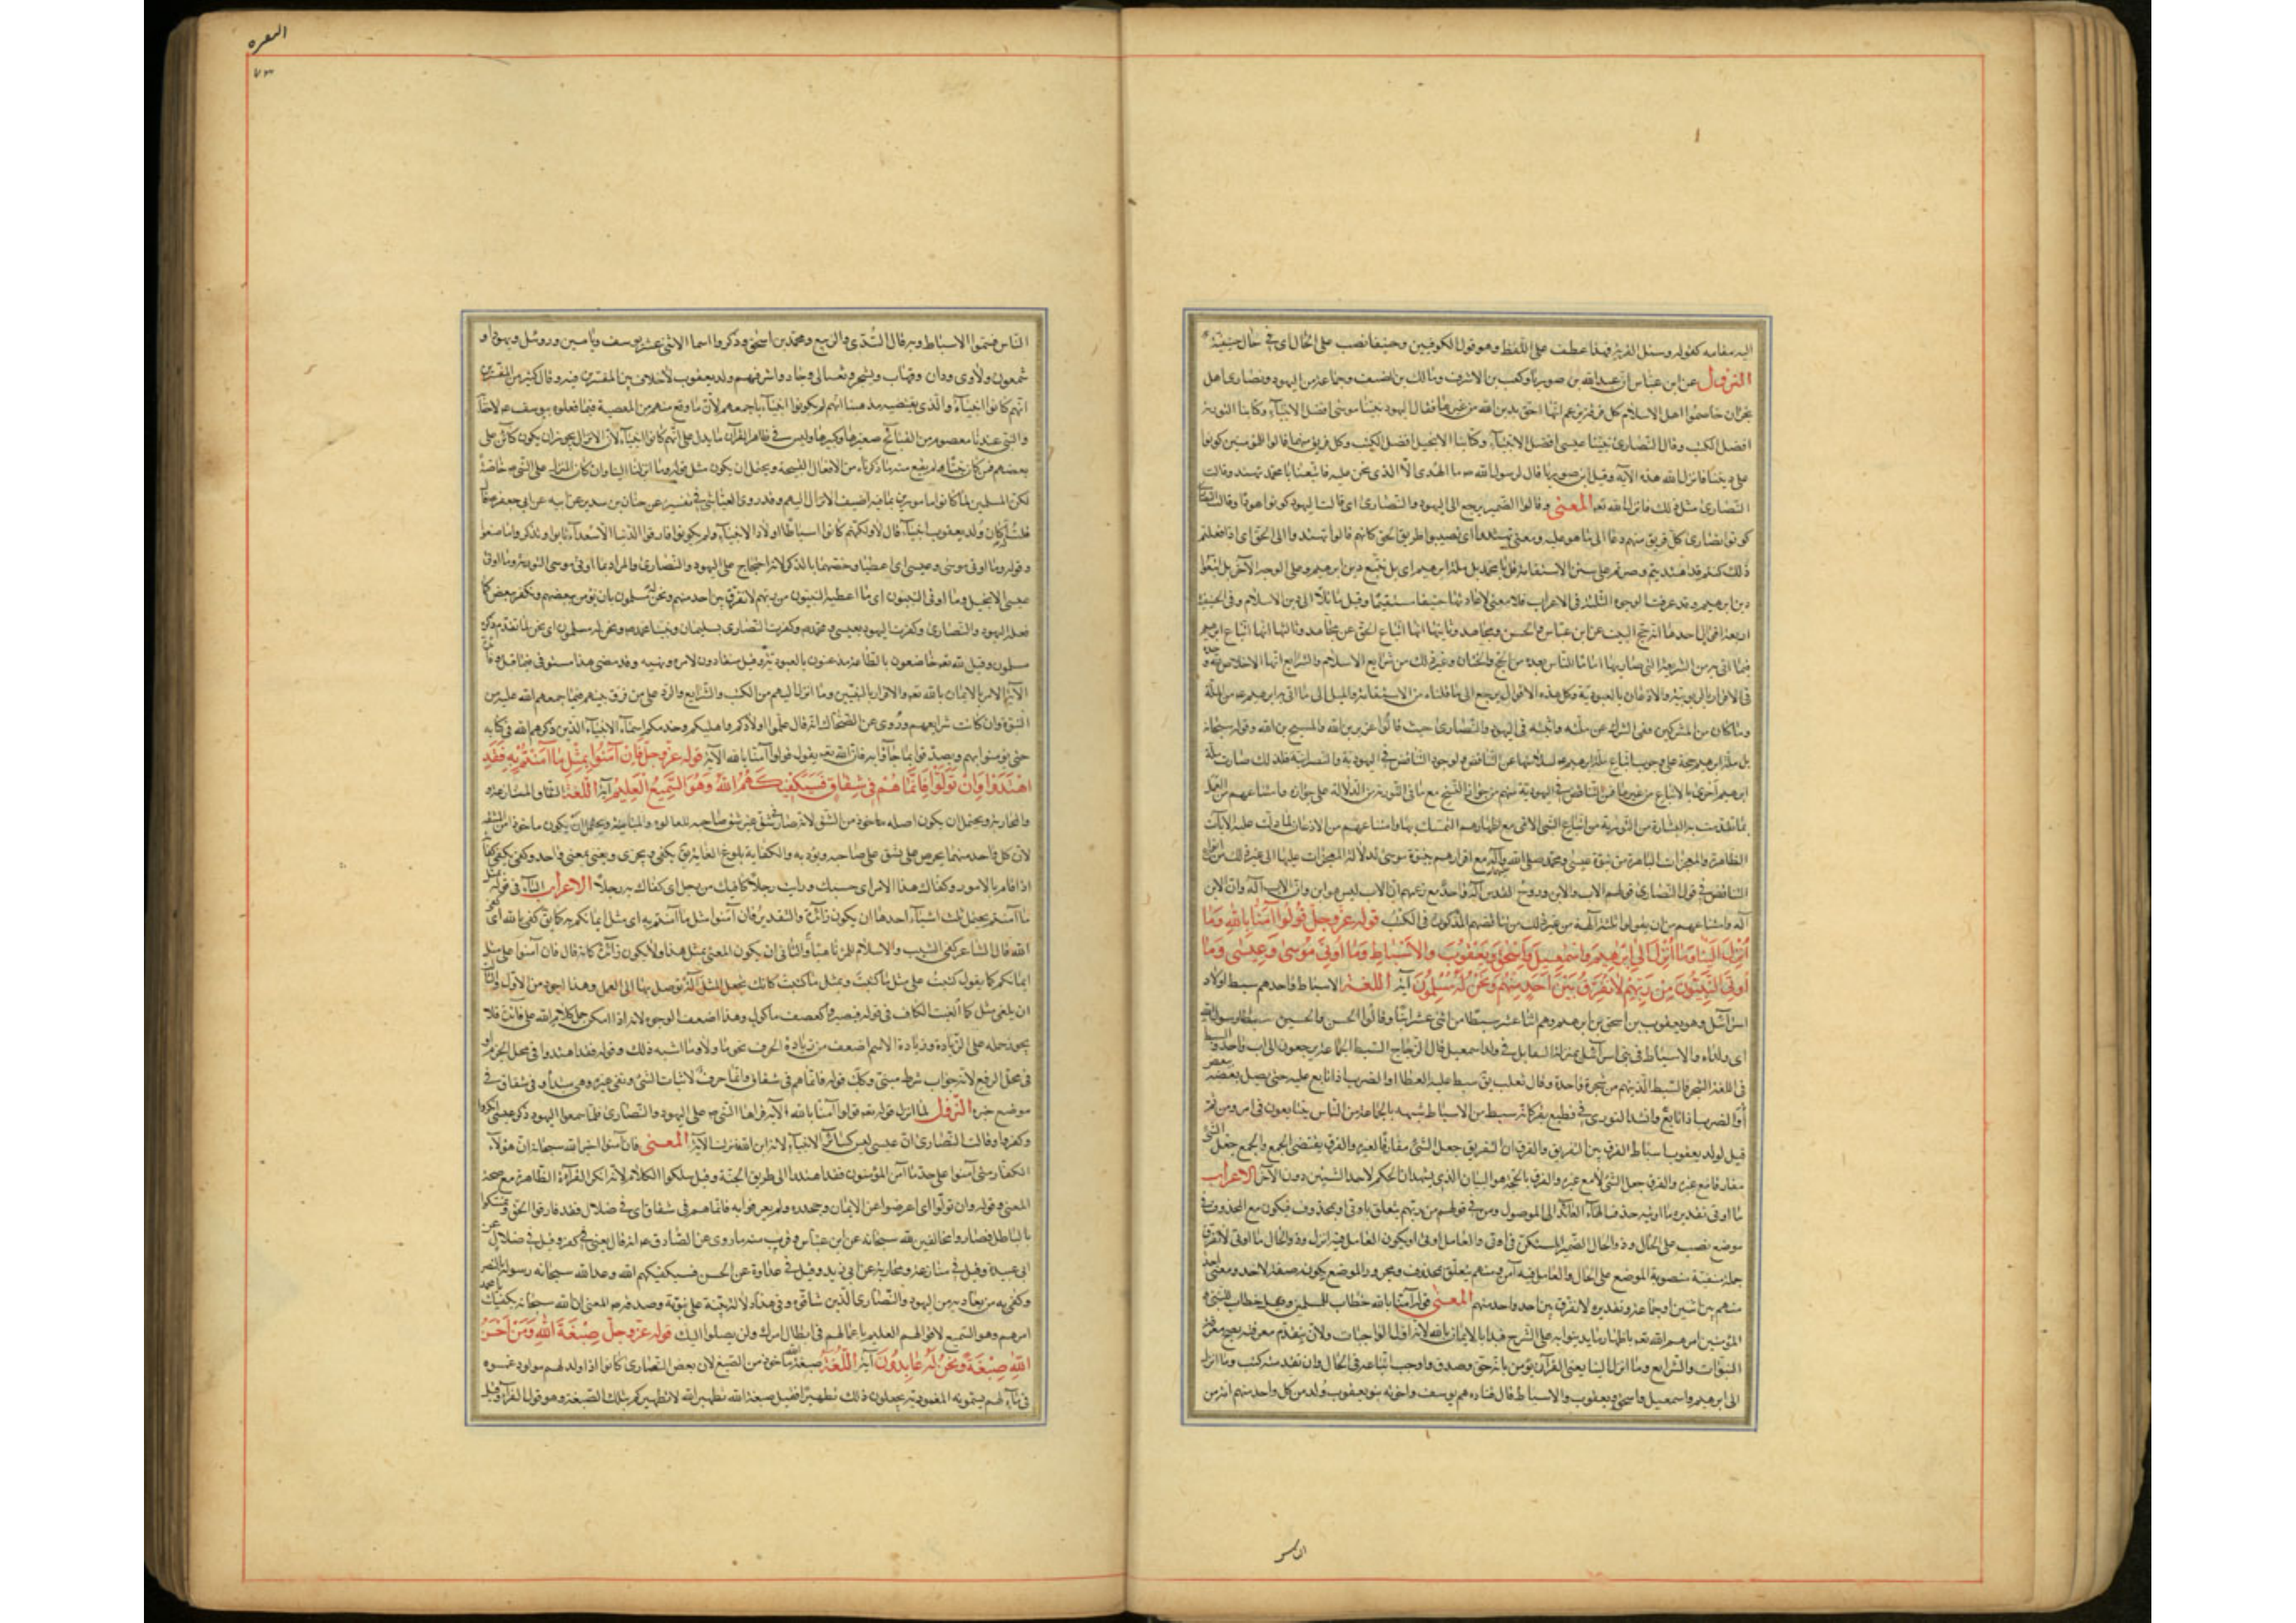 اليه مقامه كقوله وسئل القرية فهذا عطف على اللفظ وهو قول الكوفيين وحنيفا نصب على الحال اى في حال حنيفيته
النزول عن ابن عباس ان عبدالله بن صوريا وكعب بن الاشرف ومالك بن الضيف وجماعة من اليهود ونصارى اهل
نجران خاصموا اهل الاسلام كل فرقة تزعم انها احق بدين الله من غيرها فقالت اليهود نبينا موسى افضل الانبياء وكتابنا التورية
افضل الكتب وقالت النصارى نبينا عيسى افضل الانبياء وكتابنا الانجيل افضل الكتب وكل فريق منهما قالوا للمؤمنين كونوا
على ديننا فانزل الله هذه الآية وقيل ان ابن صوريا قال لرسول الله ص ما الهدى الا الذى نحن عليه فاتبعنا يا محمد تهتد وقالت
النصارى مثل ذلك فانزل الله تعه المعنى وقالوا الضمير يرجع الى اليهود والنصارى اى قالت اليهود كونوا هودا وقالت النصارى
كونوا نصارى كل فريق منهم دعا الى ما هو عليه ومعنى تهتدوا اى تصيبوا طريق الحق كانهم قالوا تهتدوا الى الحق اى اذا فعلتم
ذلك كنتم قد اهتديتم وصرتم على سنن الاستقامة قل يا محمد بل ملة ابرهيم اى بل نتبع دين ابرهيم وعلى الوجه الآخر بل اتبعوا
دين ابرهيم وقد عرفت الوجوه الثلثة فى الاعراب فلا معنى لاعادتها حنيفا مستقيما وقيل مائلا الى دين الاسلام وفى الحنيفية
اربعة اقوال احدها انه حج البيت عن ابن عباس والحسن ومجاهد وثانيها انها اتباع الحق عن مجاهد وثالثها انها اتباع ابرهيم
فيما اتى به من الشريعة التى صار بها اماما للناس بعده من الحج والختان وغير ذلك من شرايع الاسلام والرابع انها الاخلاص لله وحده
فى الاقرار بالربوبية والاذعان بالعبودية وكل هذه الاقوال يرجع الى ما قلناه من الاستقامة والميل الى ما اتى به ابرهيم ع من الملة
وما كان من المشركين نفى الشرك عن ملته واثبته فى اليهود والنصارى حيث قالوا عزير بن الله والمسيح بن الله وقوله سبحانه
بل ملة ابرهيم حجة على وجوب اتباع ملة ابرهيم ع لسلامتها عن التناقض ولوجود التناقض فى اليهودية والنصرانية فلذلك صارت ملة
ابرهيم احرى بالاتباع من غيرها فمن التناقض فى اليهودية منعهم من جواز النسخ مع ما فى التورية من الدلالة على جوازه وامتناعهم من العمل
بما تقدمت به البشارة من التورية من اتباع النبى الامى مع اظهارهم التمسك بها وامتناعهم من الاذعان لما دلت عليه الآيات
الظاهرة والمعجزات الباهرة من نبوة عيسى ومحمد صلى الله عليه وآله مع اقرارهم بنبوة موسى لدلالة المعجزات عليها الى غير ذلك من انواع
التناقض فى قول النصارى قولهم الاب والابن وروح القدس اله واحد مع زعمهم ان الاب ليس هو ابن وان الاب اله وان الابن
اله وامتناعهم من ان يقولوا ثلثة آلهة الى غير ذلك من تناقضهم المذكورة فى الكتب قوله عز وجل قُولُوا آمَنَّا بِاللهِ وَمَا
أُنْزِلَ اِلَيْنَا وَمَا أُنْزِلَ اِلَى اِبْرهِيمَ وَاِسْمعِيلَ وَاِسْحقَ وَيَعْقُوبَ وَالْاَسْبَاطِ وَمَا اُوتِيَ مُوسى وَعِيسى وَمَا
أُوتِيَ النَّبِيُّونَ مِنْ رَبِّهِمْ لَا نُفَرِّقُ بَيْنَ اَحَدٍ مِنْهُمْ وَنَحْنُ لَهُ مُسْلِمُونَ آية اللغة الاسباط واحدهم سبط اولاد
اسرائيل وهو يعقوب بن اسحق بن ابرهيم وهم اثنا عشر سبطا من اثنى عشر ابنا وقالوا الحسن والحسين سبطا رسول الله
اى ولداه والاسباط فى بنى اسرائيل بمنزلة القبايل فى ولد اسمعيل قال الزجاج السبط الجماعة يرجعون الى اب واحد والسبط
فى اللغة الشجر فالسبط الذين هم من شجرة واحدة وقال ثعلب يق سبط عليه العطا او الضرب اذا تابع عليه حتى يصل بعضه ببعض
قيل لولد يعقوب اسباط الفرق بين التفريق والفرق ان التفريق جعل الشئ مفارقا لغيره والفرق يقتضى الجمع والجمع جعل الشئ
مع غيره والفرق جعل الشئ لا مع غيره والفرق بالحجة هو البيان الذى يشهد ان الحكم لاحد الشيئين دون الآخر الاعراب
ما اوتى تقديره وما اوتيه حذف الهاء العائد الى الموصول ومن فى قوله من ربهم يتعلق باوتى او بمحذوف فيكون مع المحذوف فى
موضع نصب على الحال وذو الحال الضمير المستكن فى اوتى والعامل اوتى او يكون العامل فيه انزل وذو الحال ما اوتى لا نفرق
جملة منفية منصوبة الموضع على الحال والعامل فيه آمنا ومنهم يتعلق بمحذوف ومجرور الموضع بكونه صفة لاحد ومعنى احد
منهم بين اثنين او جماعة وتقديره لا نفرق بين احد واحد منهم المعنى قوله آمنا بالله خطاب للمسلمين وقيل خطاب للنبى و
المؤمنين امرهم الله تعه باظهار ما يدينوا به على الشرح فبدا بالايمان بالله لانه اول الواجبات ولان بتقدم معرفته يصح معرفة
النبوات والشرايع وما انزل الينا يعنى القرآن نؤمن بانه حق وصدق وواجب اتباعه فى الحال وان تقدمته كتب وما انزل
الى ابرهيم واسمعيل واسحق ويعقوب والاسباط قال قتاده هم يوسف واخوته بنو يعقوب ولد من كل واحد منهم امة من
البقره
٧٣
الناس فسموا الاسباط وبه قال السدى والربيع ومحمد بن اسحق وذكروا اسما الاثنى عشر يوسف ويامين وروبيل ويهودا و
شمعون ولاوى ودان وقهاب ويشجر ونفتالى وجاد واشر فهم ولد يعقوب لا خلاف بين المفسرين فيه وقال كثير من المفسرين
انهم كانوا انبياء والذى يقتضيه مذهبنا انهم لم يكونوا انبياء باجمعهم لان ما وقع منهم من المعصية فيما فعلوه بيوسف ع لا خفاء
والنبى عندنا معصوم من القبائح صغيرها وكبيرها وليس فى ظاهر القرآن ما يدل على انهم كانوا انبياء لان الانزال يجوز ان يكون كان على
بعضهم ممن كان نبيا ولم يقع منه ما ذكرناه من الافعال القبيحة ويحتمل ان يكون مثل قوله وما انزل الينا وان كان المنزل على النبى ص خاصة
لكن المسلمين لما كانوا مامورين بما فيه اضيف الانزال اليهم وقد روى العياشى فى تفسيره عن حنان بن سدير عن ابيه عن ابى جعفر ع قال
قلت له اكان ولد يعقوب انبياء قال لا ولكنهم كانوا اسباطا اولاد الانبياء ولم يكونوا فارقوا الدنيا الا سعداء تابوا وتذكروا ما صنعوا
وقوله وما اوتى موسى وعيسى اى اعطيا وخصهما بالذكر لانه احتجاج على اليهود والنصارى والمراد بما اوتى موسى التورية وما اوتى
عيسى الانجيل وما اوتى النبيون اى ما اعطيه النبيون من ربهم لا نفرق بين احد منهم ونحن له مسلمون بان نؤمن ببعضهم ونكفر ببعض كما
فعله اليهود والنصارى وكفرت اليهود بعيسى ومحمد ص وكفرت النصارى بسليمان ونبينا محمد ص ونحن له مسلمون اى نحن لما تقدم ذكره
مسلمون وقيل لله تعه خاضعون بالطاعة مذعنون بالعبودية وقيل منقادون لامره ونهيه وقد مضى هذا مستوفى فيما قبل وفائدة
الآية الامر بالايمان بالله تعه والاقرار بالنبيين وما انزل اليهم من الكتب والشرايع والرد على من فرق بينهم فيما جمعهم الله عليه من
النبوة وان كانت شرايعهم وروى عن الضحاك انه قال علموا اولادكم واهليكم وخدمكم اسماء الانبياء الذين ذكرهم الله فى كتابه
حتى يؤمنوا بهم ويصدقوا بما جاؤا به فان الله تعه يقول قولوا آمنا بالله الآية قوله عز وجل فَاِنْ آمَنُوا بِمِثْلِ مَا آمَنْتُمْ بِهِ فَقَدِ
اهْتَدَوْا وَاِنْ تَوَلَّوْا فَاِنَّمَا هُمْ فِى شِقَاقٍ فَسَيَكْفِيكَهُمُ اللهُ وَهُوَ السَّمِيعُ الْعَلِيمُ آية اللغة الشقاق المنازعة
والمحاربة ويحتمل ان يكون اصله ماخوذ من الشق لانه صار فى شق غير شق صاحبه للعداوة والمباينة ويحتمل ان يكون ماخوذا من المشقة
لان كل واحد منهما يحرص على ما يشق على صاحبه ويؤذيه والكفاية بلوغ الغاية يق يكفى ويجزى ويغنى بمعنى واحد وكفى يكفى كفاية
اذا قام بالامور وكفاك هذا الامر اى حسبك ورايت رجلا كافيك من رجل اى كفاك به رجلا الاعراب الباء فى قوله بمثل
ما آمنتم يحتمل ثلث اشياء احدها ان يكون زائدة والتقدير فان آمنوا مثل ما آمنتم به اى مثل ايمانكم به كما يق كفى بالله اى كفى
الله قال الشاعر كفى الشيب والاسلام للمرء ناهيا والثانى ان يكون المعنى بمثل هذا ولا يكون زائدة كانه قال فان آمنوا على مثل
ايمانكم كما يقول كتبت على مثل ما كتبت وبمثل ما كتبت كانك تجعل المثل آلة توصل بها الى العمل وهذا اجود من الاول والثالث
ان يلغى مثل كما الغيت الكاف فى قوله فصيروا كعصف ماكول وهذا اضعف الوجوه لانه اذا امكن حمل كلام الله على فائدة فلا
يجوز حمله على الزيادة وزيادة الاسم اضعف من زيادة الحرف نحو ما ولا وما اشبه ذلك وقوله فقد اهتدوا فى محل الجزم او
فى محل الرفع لانه جواب شرط مبنى وكذلك قوله فانما هم فى شقاق وانما حرف لاثبات الشئ ونفى غيره وهم مبتدأ وفى شقاق فى
موضع خبره النزول لما انزل قوله تعه قولوا آمنا بالله الآية قراها النبى ص على اليهود والنصارى فلما سمعوا اليهود ذكر عيسى انكروا
وكفروا وقالت النصارى ان عيسى ليس كسائر الانبياء لانه ابن الله فنزلت الآية المعنى فان آمنوا اخبر الله سبحانه ان هؤلاء
الكفار متى آمنوا على حد ما آمن المؤمنون فقد اهتدوا الى طريق الجنة وقيل سلكوا
المعنى وقوله وان تولوا اى اعرضوا عن الايمان وجحدوه ولم يعترفوا به فانما هم فى شقاق اى فى ضلال فقد فارقوا الحق وتمسكوا
بالباطل فصاروا مخالفين لله سبحانه عن ابن عباس وقريب منه ما روى عن الصادق ع انه قال يعنى فى كفر وقيل فى ضلال عن
ابى عبيدة وقيل فى منازعة ومحاربة عن ابى زيد وقيل فى عداوة عن الحسن فسيكفيكهم الله وعد الله سبحانه رسوله بالنصر
وكفى به من يعاديه من اليهود والنصارى الذين شاقوه وفى هذا دلالة بينة على نبوته وصدقه ص المعنى ان الله سبحانه يكفيك
امرهم وهو السميع لاقوالهم العليم باعمالهم فى ابطال امرك ولن يصلوا اليك قوله عز وجل صِبْغَةَ اللهِ وَمَنْ اَحْسَنُ
مِنَ اللهِ صِبْغَةً وَنَحْنُ لَهُ عَابِدُونَ آية اللغة صبغة الله ماخوذ من الصبغ لان بعض النصارى كانوا اذا ولد لهم مولود غمسوه
فى ماء لهم يسمونه المعمودية يجعلون ذلك تطهيرا له فقيل صبغة الله تطهير الله لا تطهيركم بتلك الصبغة وهو قول الفراء وقيل